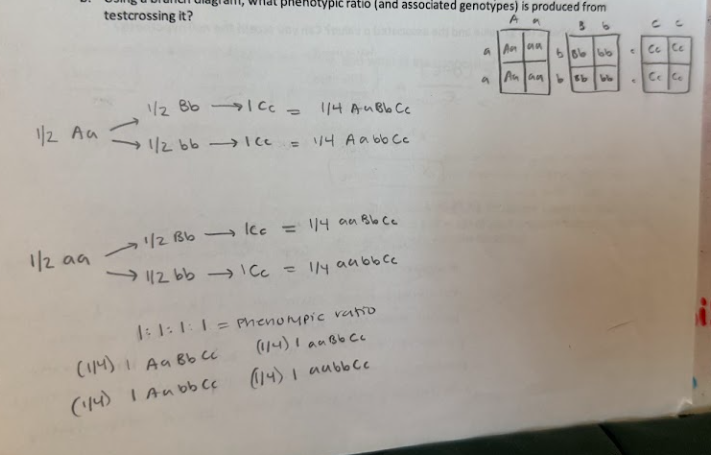 Using a branch diagram, what phenotypic ratio (and associated genotypes) is produced from
testcrossing it?
A a
a Aa aa
a Aa aa
B b
b Bb bb
b Bb bb
C C
c Cc Cc
c Cc Cc
1/2 Aa
1/2 Bb → 1 Cc = 1/4 AaBbCc
1/2 bb → 1 Cc = 1/4 AabbCc
1/2 aa
1/2 Bb → 1Cc = 1/4 aaBbCc
1/2 bb → 1Cc = 1/4 aabbCc
1:1:1:1 = phenotypic ratio
(1/4) 1 AaBbCc (1/4) 1 aaBbCc
(1/4) 1 AabbCc (1/4) 1 aabbCc